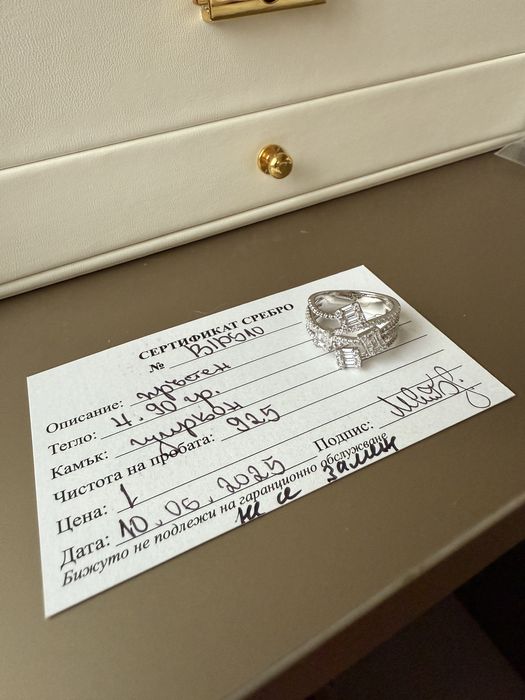 СЕРТИФИКАТ СРЕБРО
№
Описание: пръстен
Тегло: 4.90 гр.
Камък: циркон
Чистота на пробата: 925
Цена: 1
Дата: 10.06.2025 Подпис:
Бижуто не подлежи на гаранционно обслужване
не се заменя